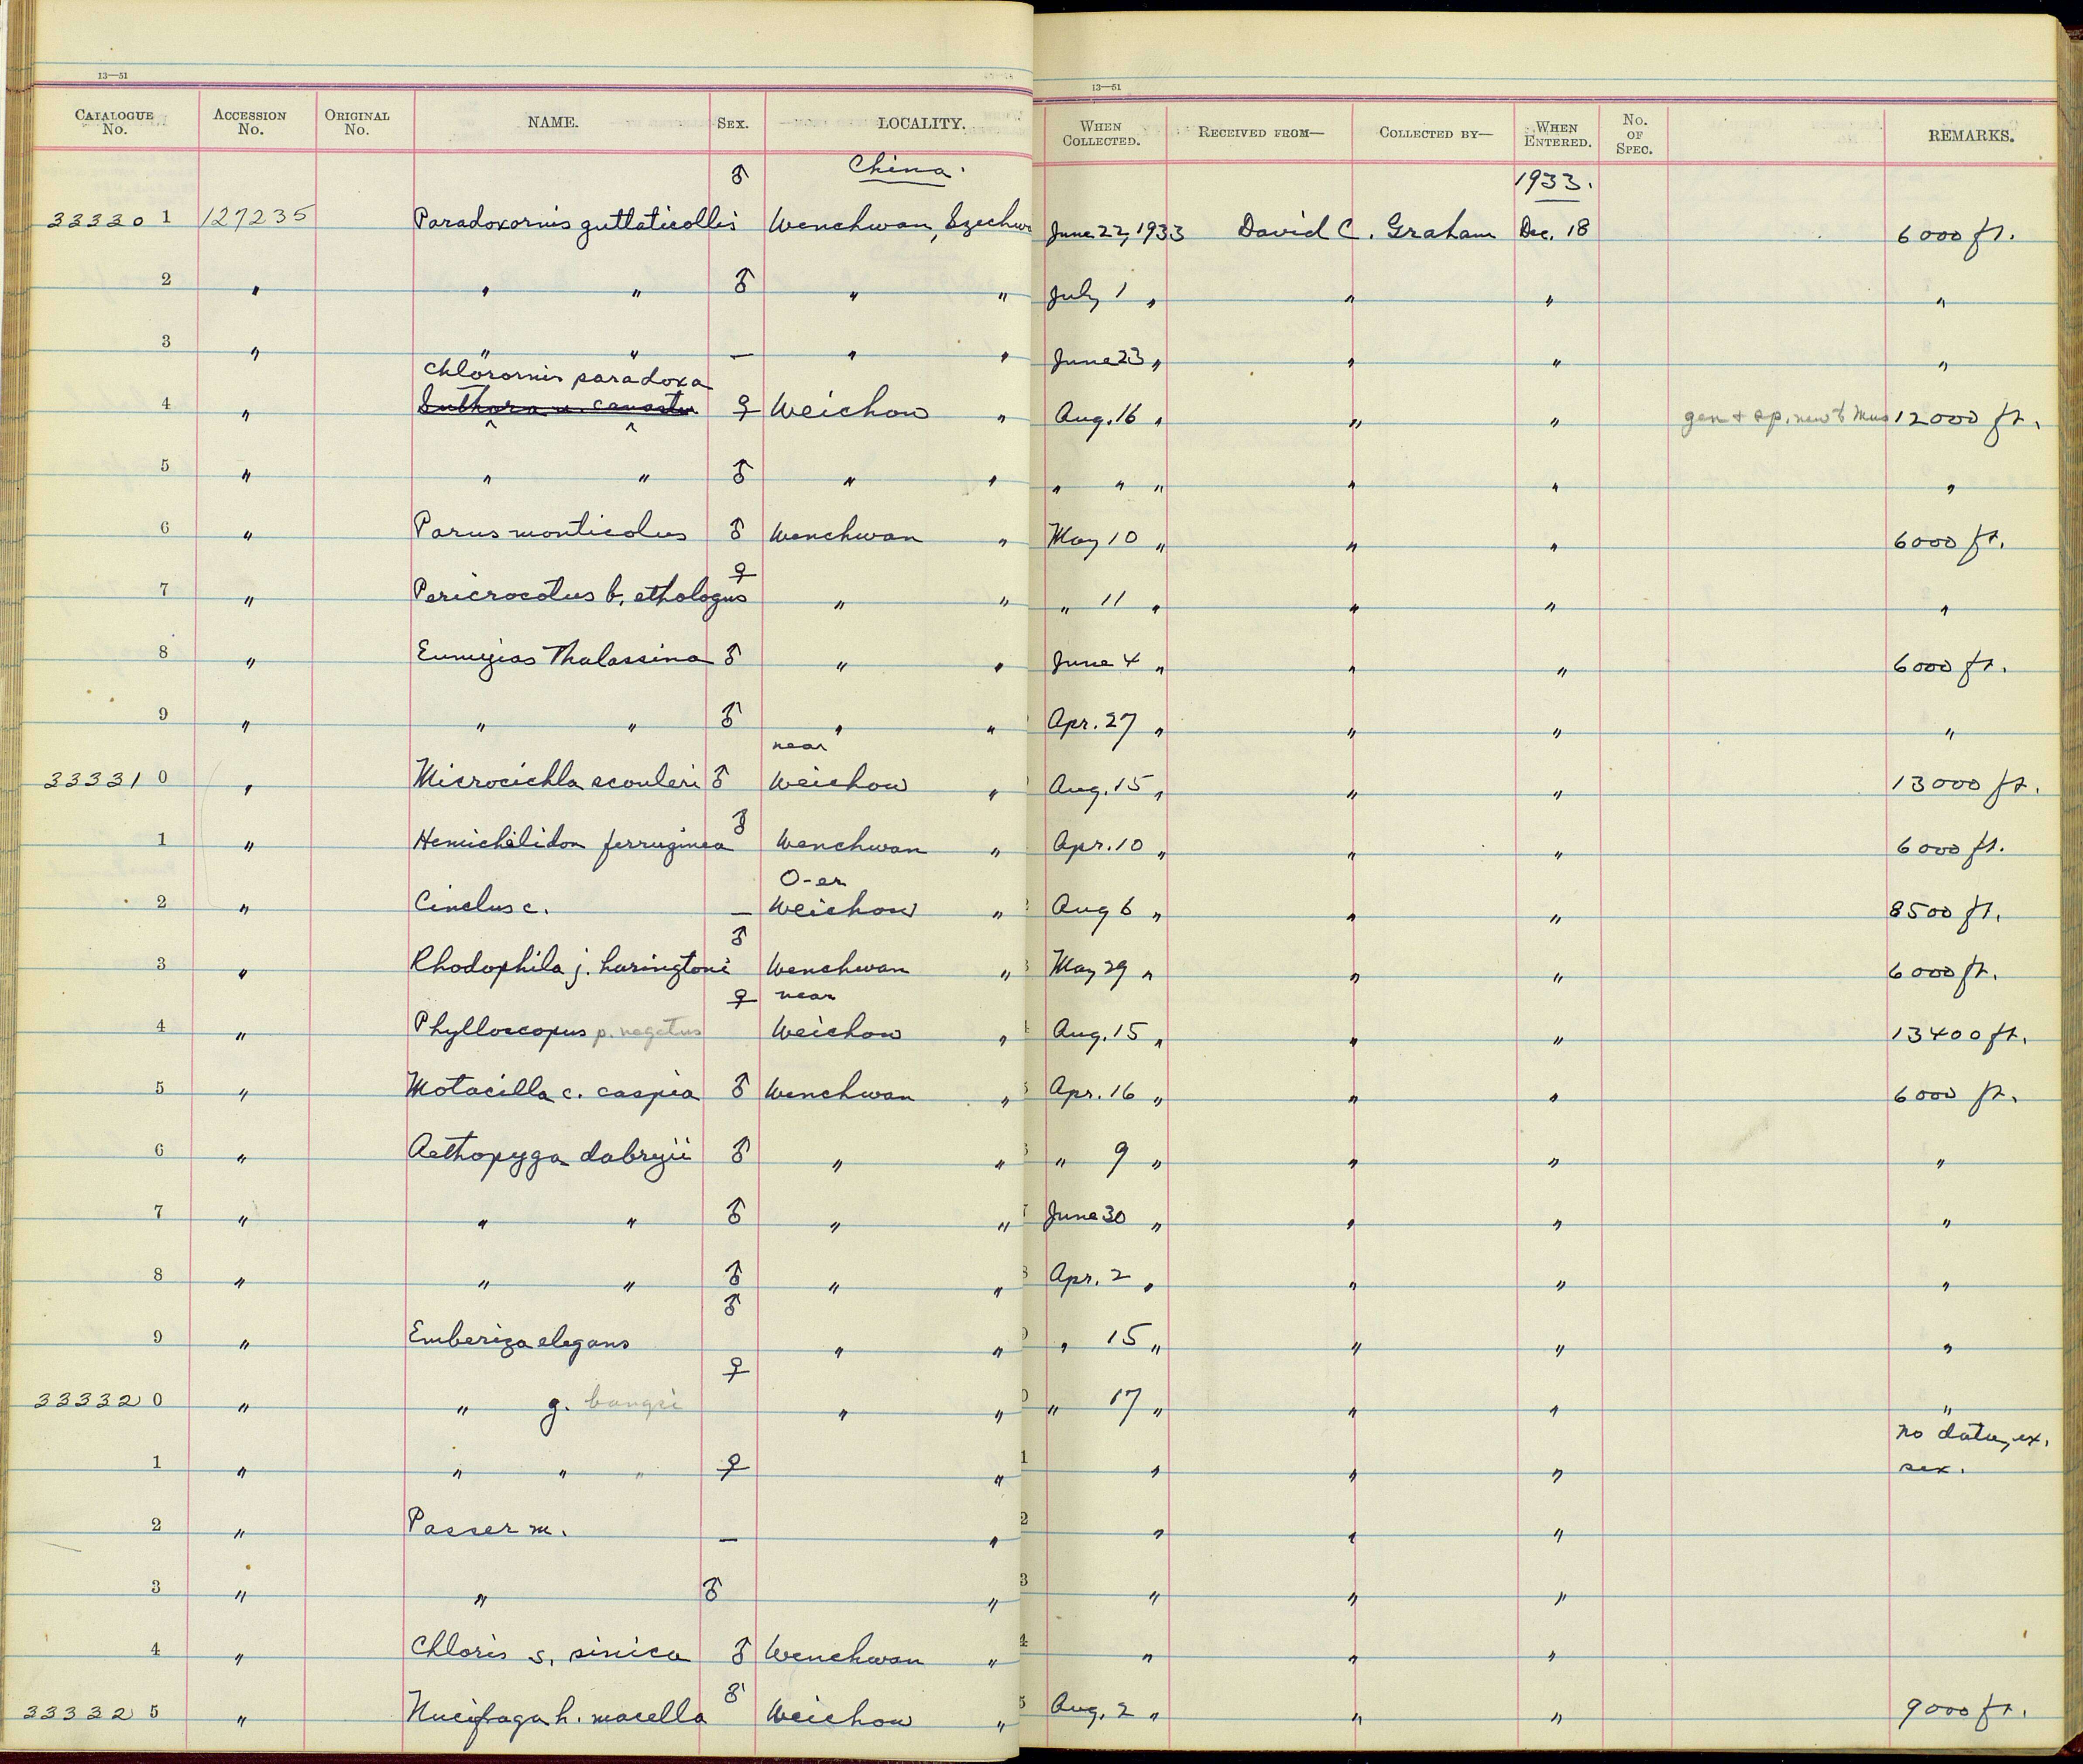 13—51
13—51
CATALOGUE No. ACCESSION No. ORIGINAL No. NAME. SEX. LOCALITY. WHEN COLLECTED. RECEIVED FROM— COLLECTED BY— WHEN ENTERED. No. OF SPEC. REMARKS.
♂ China. 1933.
33330 1 127235 Paradoxornis guttaticollis Wenchwan, Szechw June 22, 1933 David C. Graham Dec. 18 6000 ft.
2 " " " ♂ " " July 1 " " " "
3 " " " — " " June 23 " " " "
Chlorornis paradoxa
4 " Suthora u. canaster ♀ Weichow " Aug. 16 " " " gen + sp. new to Mus 12000 ft.
5 " " " ♂ " " " " " " " "
6 " Parus monticolus ♂ Wenchwan " May 10 " " " 6000 ft.
7 " Pericrocotus b. ethologus ♀ " " " 11 " " " "
8 " Eumyias Thalassina ♂ " " June 4 " " " 6000 ft.
9 " " " ♂ " " Apr. 27 " " " "
near
33331 0 " Microcichla scouleri ♂ Weichow " Aug. 15 " " " 13000 ft.
1 " Hemichelidon ferruginea ♂ Wenchwan " Apr. 10 " " " 6000 ft.
O-er
2 " Cinclus c. — Weichow " Aug 6 " " " 8500 ft.
3 " Rhodophila j. haringtoni ♂ Wenchwan " May 29 " " " 6000 ft.
♀ near
4 " Phylloscopus p. Weichow " Aug. 15 " " " 13400 ft.
5 " Motacilla c. caspia ♂ Wenchwan " Apr. 16 " " " 6000 ft.
6 " Aethopyga dabryii ♂ " " " 9 " " " "
7 " " " ♂ " " June 30 " " " "
8 " " " ♂ " " Apr. 2 " " " "
9 " Emberiza elegans ♂ " " " 15 " " " "
33332 0 " " g. bangsi ♀ " " " 17 " " " "
no data, ex.
1 " " " " ♀ " 1 " " " sex.
2 " Passer m. — " 2 " " "
3 " " ♂ " 3 " " "
4 " Chloris s. sinica ♂ Wenchwan " 4 " " "
33332 5 " Nucifraga h. macella ♂ Weichow " 5 Aug. 2 " " " 9000 ft.